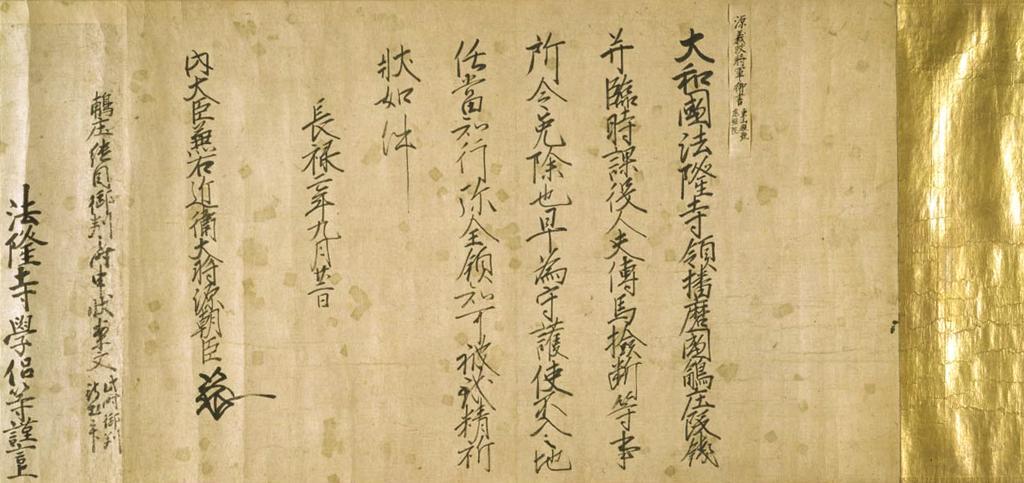 源義政将軍御書
大和國法隆寺領播磨國鵤庄段銭
并臨時課役人夫傳馬撿断等事
所令免除也早為守護使不入之地
任當知行弥全領知可被致精祈
状如件
長禄二年九月廿一日
内大臣兼右近衛大将源朝臣
鵤庄
法隆寺學侶等謹言